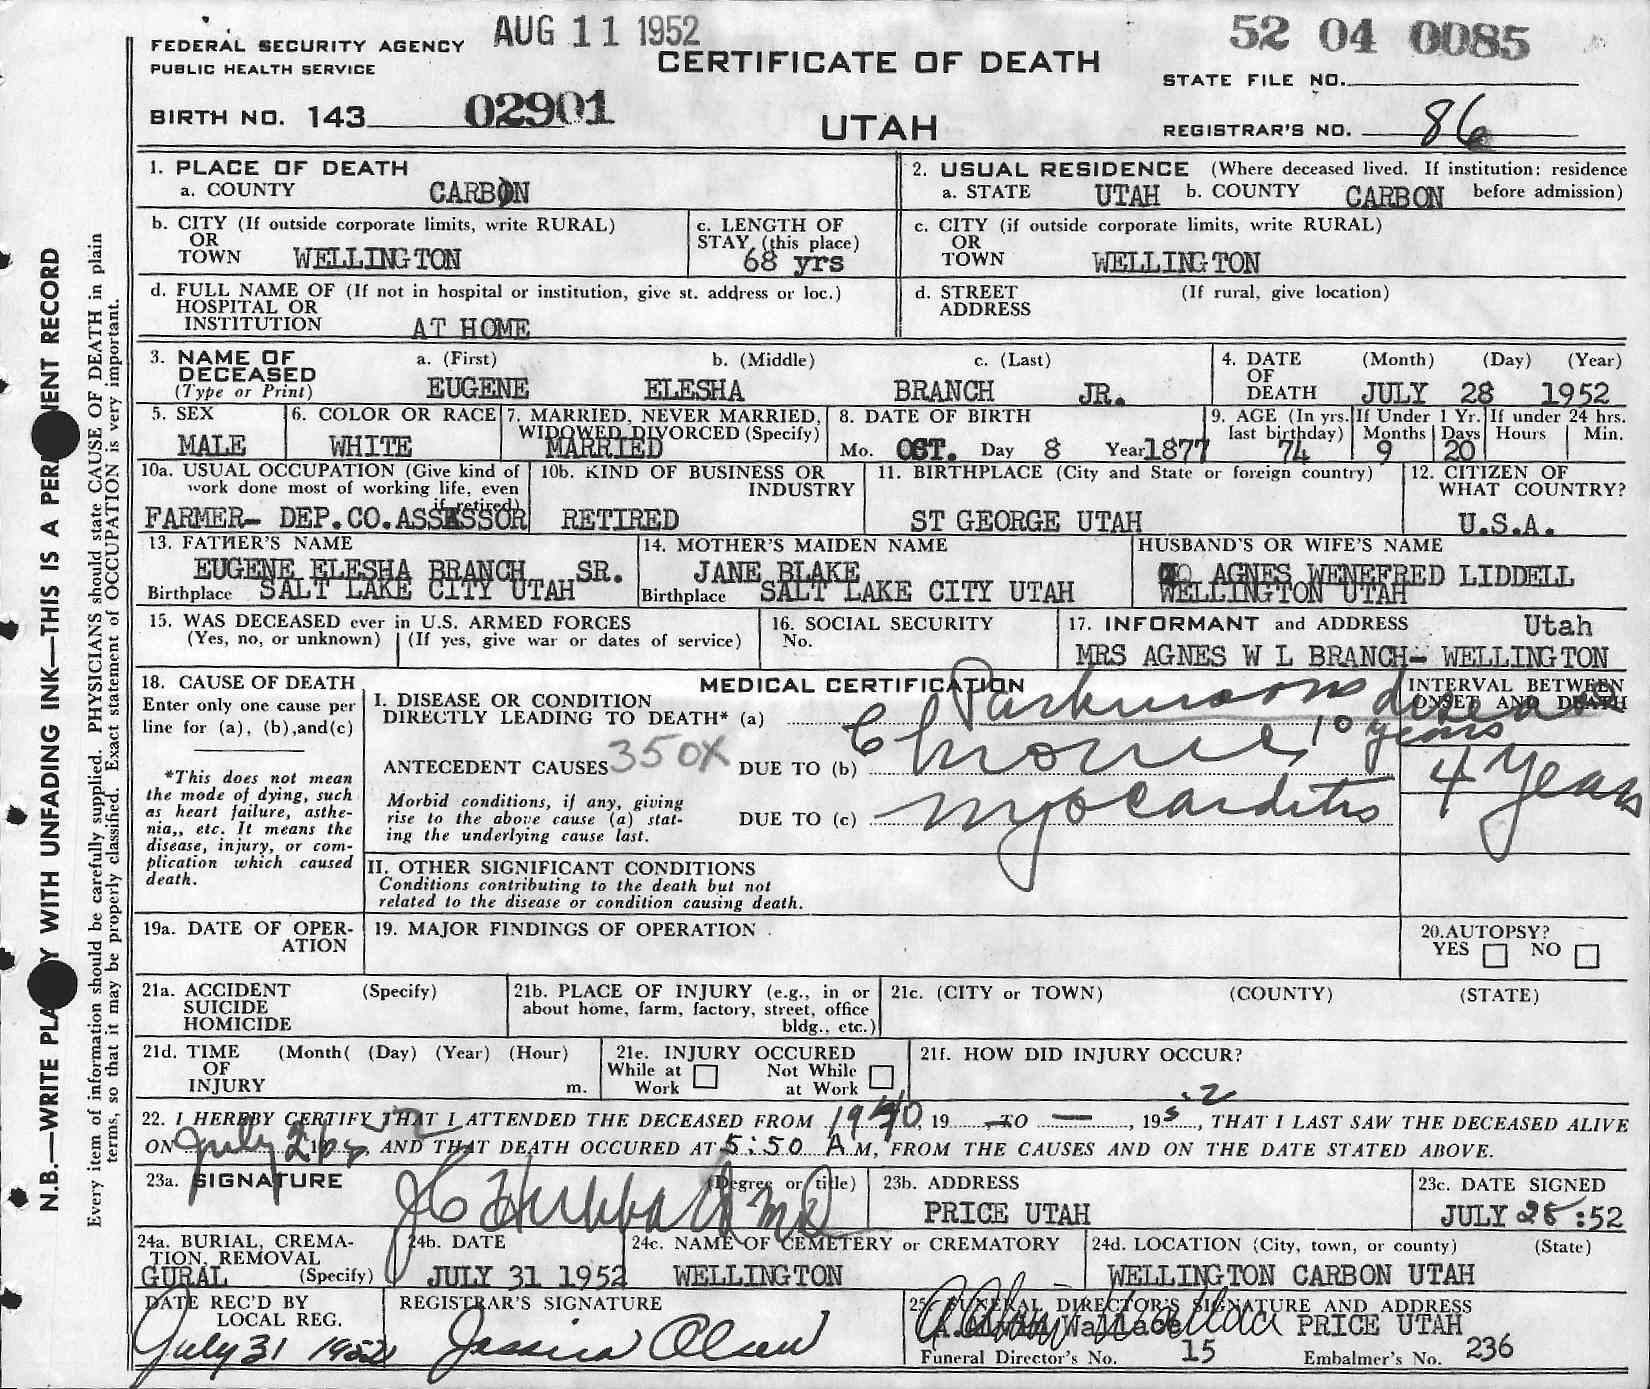 AUG 11 1952
52 04 0085
FEDERAL SECURITY AGENCY
PUBLIC HEALTH SERVICE
CERTIFICATE OF DEATH
STATE FILE NO.
BIRTH NO. 143 02901
UTAH
REGISTRAR'S NO. 86
N.B.—WRITE PLA Y WITH UNFADING INK—THIS IS A PER ENT RECORD
Every item of information should be carefully supplied. PHYSICIANS should state CAUSE OF DEATH in plain
terms, so that it may be properly classified. Exact statement of OCCUPATION is very important.
1. PLACE OF DEATH
a. COUNTY CARBON
2. USUAL RESIDENCE (Where deceased lived. If institution: residence
a. STATE UTAH b. COUNTY CARBON before admission)
b. CITY (If outside corporate limits, write RURAL)
OR
TOWN WELLINGTON
c. LENGTH OF
STAY (this place)
68 yrs
c. CITY (if outside corporate limits, write RURAL)
OR
TOWN WELLINGTON
d. FULL NAME OF (If not in hospital or institution, give st. address or loc.)
HOSPITAL OR
INSTITUTION AT HOME
d. STREET (If rural, give location)
ADDRESS
3. NAME OF a. (First) b. (Middle) c. (Last)
DECEASED
(Type or Print) EUGENE ELESHA BRANCH JR.
4. DATE (Month) (Day) (Year)
OF
DEATH JULY 28 1952
5. SEX
MALE
6. COLOR OR RACE
WHITE
7. MARRIED, NEVER MARRIED,
WIDOWED DIVORCED (Specify)
MARRIED
8. DATE OF BIRTH
Mo. OCT. Day 8 Year 1877
9. AGE (In yrs. last birthday) 74
If Under 1 Yr. Months 9 Days 20
If under 24 hrs. Hours Min.
10a. USUAL OCCUPATION (Give kind of
work done most of working life, even
if retired)
FARMER- DEP.CO.ASSASSOR
10b. KIND OF BUSINESS OR
INDUSTRY
RETIRED
11. BIRTHPLACE (City and State or foreign country)
ST GEORGE UTAH
12. CITIZEN OF
WHAT COUNTRY?
U.S.A.
13. FATHER'S NAME
EUGENE ELESHA BRANCH SR.
Birthplace SALT LAKE CITY UTAH
14. MOTHER'S MAIDEN NAME
JANE BLAKE
Birthplace SALT LAKE CITY UTAH
HUSBAND'S OR WIFE'S NAME
AGNES WENEFRED LIDDELL
WELLINGTON UTAH
15. WAS DECEASED ever in U.S. ARMED FORCES
(Yes, no, or unknown) (If yes, give war or dates of service)
16. SOCIAL SECURITY
No.
17. INFORMANT and ADDRESS Utah
MRS AGNES W L BRANCH- WELLINGTON
18. CAUSE OF DEATH
Enter only one cause per
line for (a), (b),and(c)
*This does not mean
the mode of dying, such
as heart failure, asthe-
nia,, etc. It means the
disease, injury, or com-
plication which caused
death.
MEDICAL CERTIFICATION
INTERVAL BETWEEN
ONSET AND DEATH
I. DISEASE OR CONDITION
DIRECTLY LEADING TO DEATH* (a) Parkinsons disease
10 years
ANTECEDENT CAUSES 350X DUE TO (b) Chronic
4 years
Morbid conditions, if any, giving
rise to the above cause (a) stat-
ing the underlying cause last.
DUE TO (c) myocarditis
II. OTHER SIGNIFICANT CONDITIONS
Conditions contributing to the death but not
related to the disease or condition causing death.
19a. DATE OF OPER-
ATION
19. MAJOR FINDINGS OF OPERATION
20.AUTOPSY?
YES NO
21a. ACCIDENT (Specify)
SUICIDE
HOMICIDE
21b. PLACE OF INJURY (e.g., in or
about home, farm, factory, street, office
bldg., etc.)
21c. (CITY or TOWN) (COUNTY) (STATE)
21d. TIME (Month( (Day) (Year) (Hour)
OF
INJURY m.
21e. INJURY OCCURED
While at Not While
Work at Work
21f. HOW DID INJURY OCCUR?
22. I HEREBY CERTIFY THAT I ATTENDED THE DECEASED FROM 1940, 19 TO — , 1952, THAT I LAST SAW THE DECEASED ALIVE
ON July AND THAT DEATH OCCURED AT 5:50 A M, FROM THE CAUSES AND ON THE DATE STATED ABOVE.
23a. SIGNATURE (Degree or title)
J C Hubbard MD
23b. ADDRESS
PRICE UTAH
23c. DATE SIGNED
JULY 28:52
24a. BURIAL, CREMA-
TION, REMOVAL
GURAL (Specify)
24b. DATE
JULY 31 1952
24c. NAME OF CEMETERY or CREMATORY
WELLINGTON
24d. LOCATION (City, town, or county) (State)
WELLINGTON CARBON UTAH
DATE REC'D BY
LOCAL REG.
July 31 1952
REGISTRAR'S SIGNATURE
Jessica Olsen
25. FUNERAL DIRECTOR'S SIGNATURE AND ADDRESS
Wallace PRICE UTAH
Funeral Director's No. 15 Embalmer's No. 236